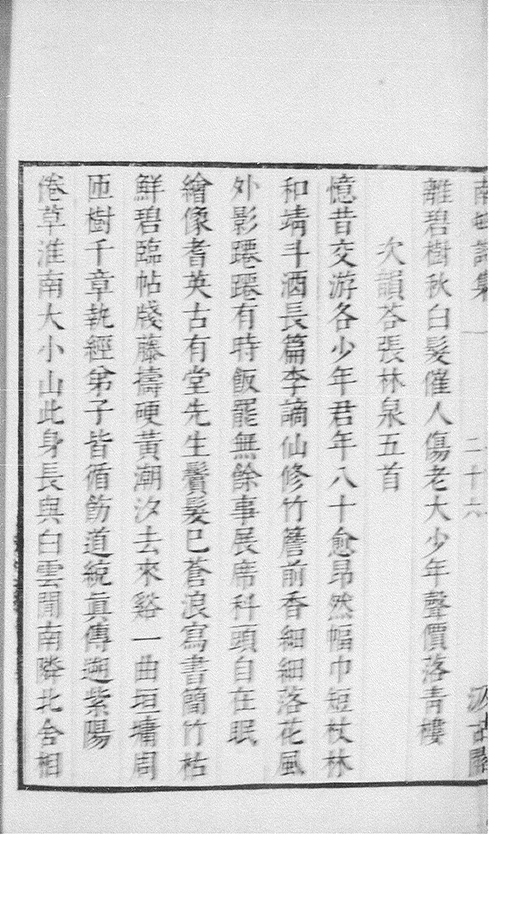 南村詩集 二十六 汲古閣
離碧樹秋白髮催人傷老大少年聲價落青樓
次韻荅張林泉五首
憶昔交游各少年君年八十愈昂然幅巾短杖林
和靖斗酒長篇李謫仙修竹簷前香細細落花風
外影躚躚有時飯罷無餘事展席科頭自在眠
繪像耆英古有堂先生鬢髮已蒼浪寫書簡竹枯
鮮碧臨帖牋藤擣硬黃潮汐去來谿一曲垣墉周
匝樹千章執經弟子皆循飭道統眞傳遡紫陽
倦草淮南大小山此身長與白雲閒南隣北舍相